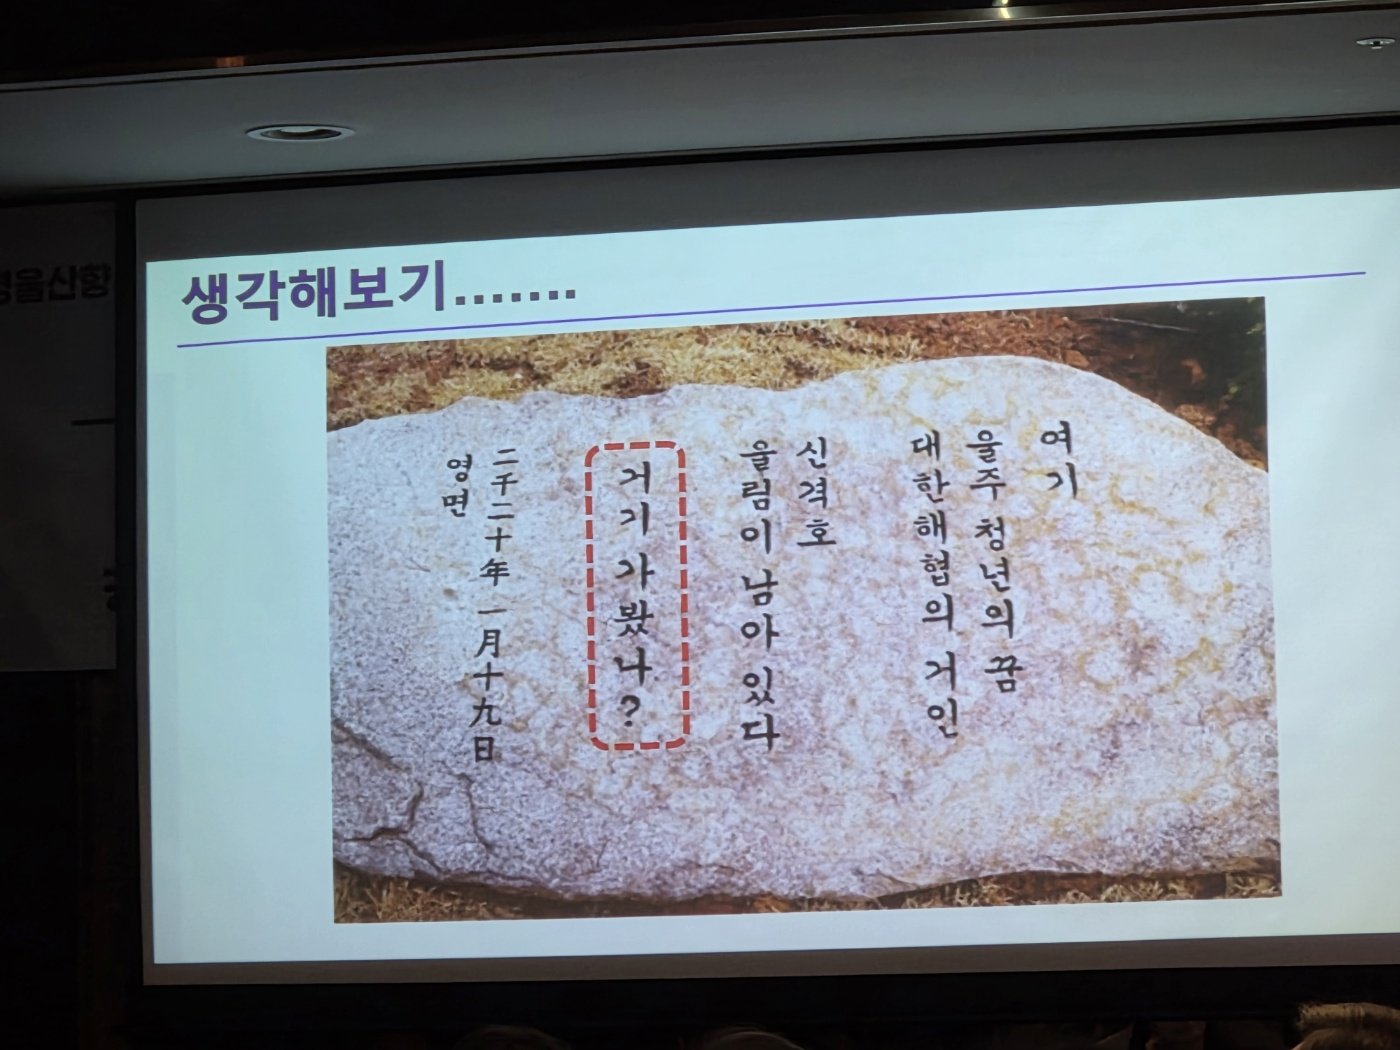 생각해보기.......
여기
울주 청년의 꿈
대한해협의 거인
신격호
울림이 남아 있다
거기 가봤나?
二千二十年 一月十九日
영면